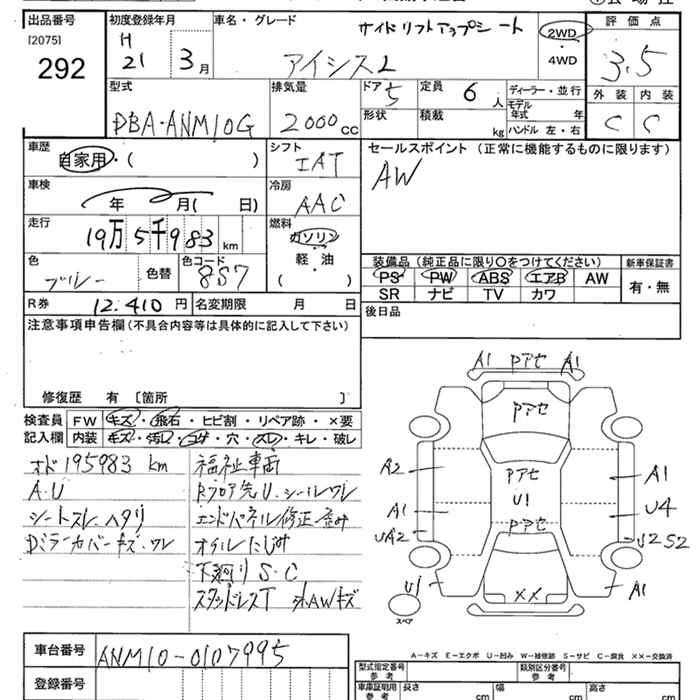 出品番号
[2075]
292
初度登録年月
H
21 3月
車名・グレード
サイドリフトアップシート
アイシス L
2WD
・
4WD
評価点
3.5
外装 内装
C C
型式
DBA-ANM10G
排気量
2000cc
ドア 5
形状
定員 6人
積載 kg
ディーラー・並行
モデル
年式 年
ハンドル 左・右
車歴
自家用・( )
シフト
IAT
車検
年 月( 日)
冷房
AAC
走行
19万5千983km
燃料
ガソリン
軽・油
( )
色
ブルー
色替
色コード
8S7
R券 12,410円
名変期限 月 日
セールスポイント(正常に機能するものに限ります)
AW
装備品(純正品に限り○をつけてください)
PS PW ABS エアB AW
SR ナビ TV カワ
新車保証書
有・無
後日品
注意事項申告欄(不具合内容等は具体的に記入して下さい)
修復歴 有[箇所 ]
検査員
記入欄
FW キズ・飛石・ヒビ割・リペア跡・×要
内装 キズ・汚レ・コゲ・穴・スレ・キレ・破レ
オド 195983 km
A.U
シートスレ・ヘタリ
Dミラーカバーキズ・ワレ
福祉車両
Rフロア先U.シールワレ
エンドパネル修正・歪み
オイルにじみ
下廻りS・C
スタッドレスT 外AWキズ
A1 Pアセ A1
Pアセ
A2
Pアセ
A1
A1
U1
U4
Pアセ
UA2
U2S2
U1
××
A1
スペア
A-キズ E-エクボ U-凹み W-補修跡 S-サビ C-腐食 ××-交換済
車台番号
ANM10-0107995
登録番号
型式指定番号
参考
類別区分番号
参考
車庫証明用
参考
長さ cm
幅 cm
高さ cm